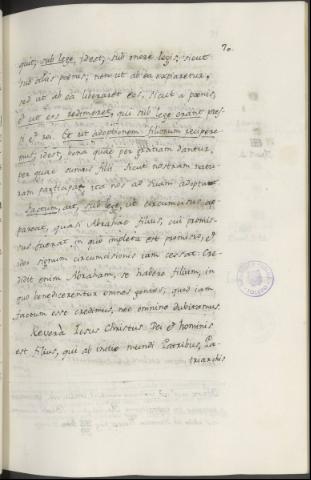 70.
quit, sub lege, idest, sub onere legis, sicut
sub aliis poenis; non ut ab ea expiaretur,
sed ut ab ea liberaret eos, sicut a poenis,
et ut eos redimeret, qui sub lege erant
Et ut adoptionem filiorum recipere
mus, idest, bona quae per gratiam dantur,
per quae sumus filii. Sicut nostram natu
ram participat, ita nos ad suam adoptat
Factum, ait, sub lege, ut circumcisus ap
pareat, quasi Abrahae filius, cui promis
sus fuerat, in quo impleta est promissio, et
ideo signum circumcisionis iam cessat. Cre
didit enim Abraham, se habere filium, in
quo benedicerentur omnes gentes, quod iam
factum esse credimus, nec omnino dubitamus.
Reverà Iesus Christus Dei et hominis
est filius, qui ab initio mundi Patribus, Pa
triarchis